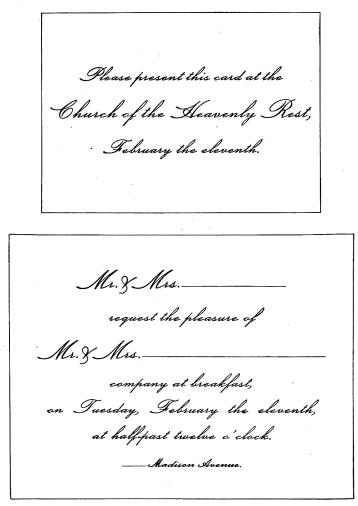 Please present this card at the
Church of the Heavenly Rest,
February the eleventh.
Mr. & Mrs.
request the pleasure of
Mr. & Mrs.
company at breakfast,
on Tuesday, February the eleventh,
at half-past twelve o'clock.
Madison Avenue.